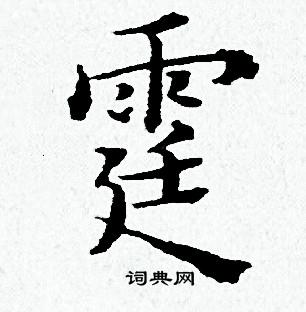 霆
词典网